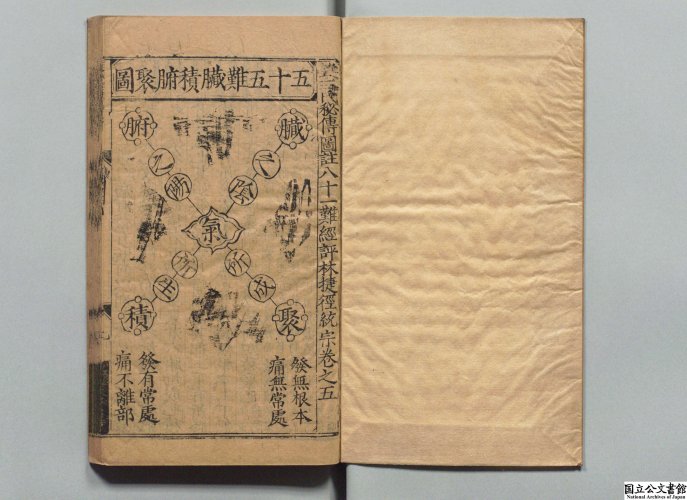 王氏秘傳圖註八十一難經評林捷徑統宗卷之五
五十五難臟積腑聚圖
臟
之
陰
腑
之
陽
氣
所
成
聚
生
積
發無根本
痛無常處
發有常處
痛不離部
国立公文書館
National Archives of Japan